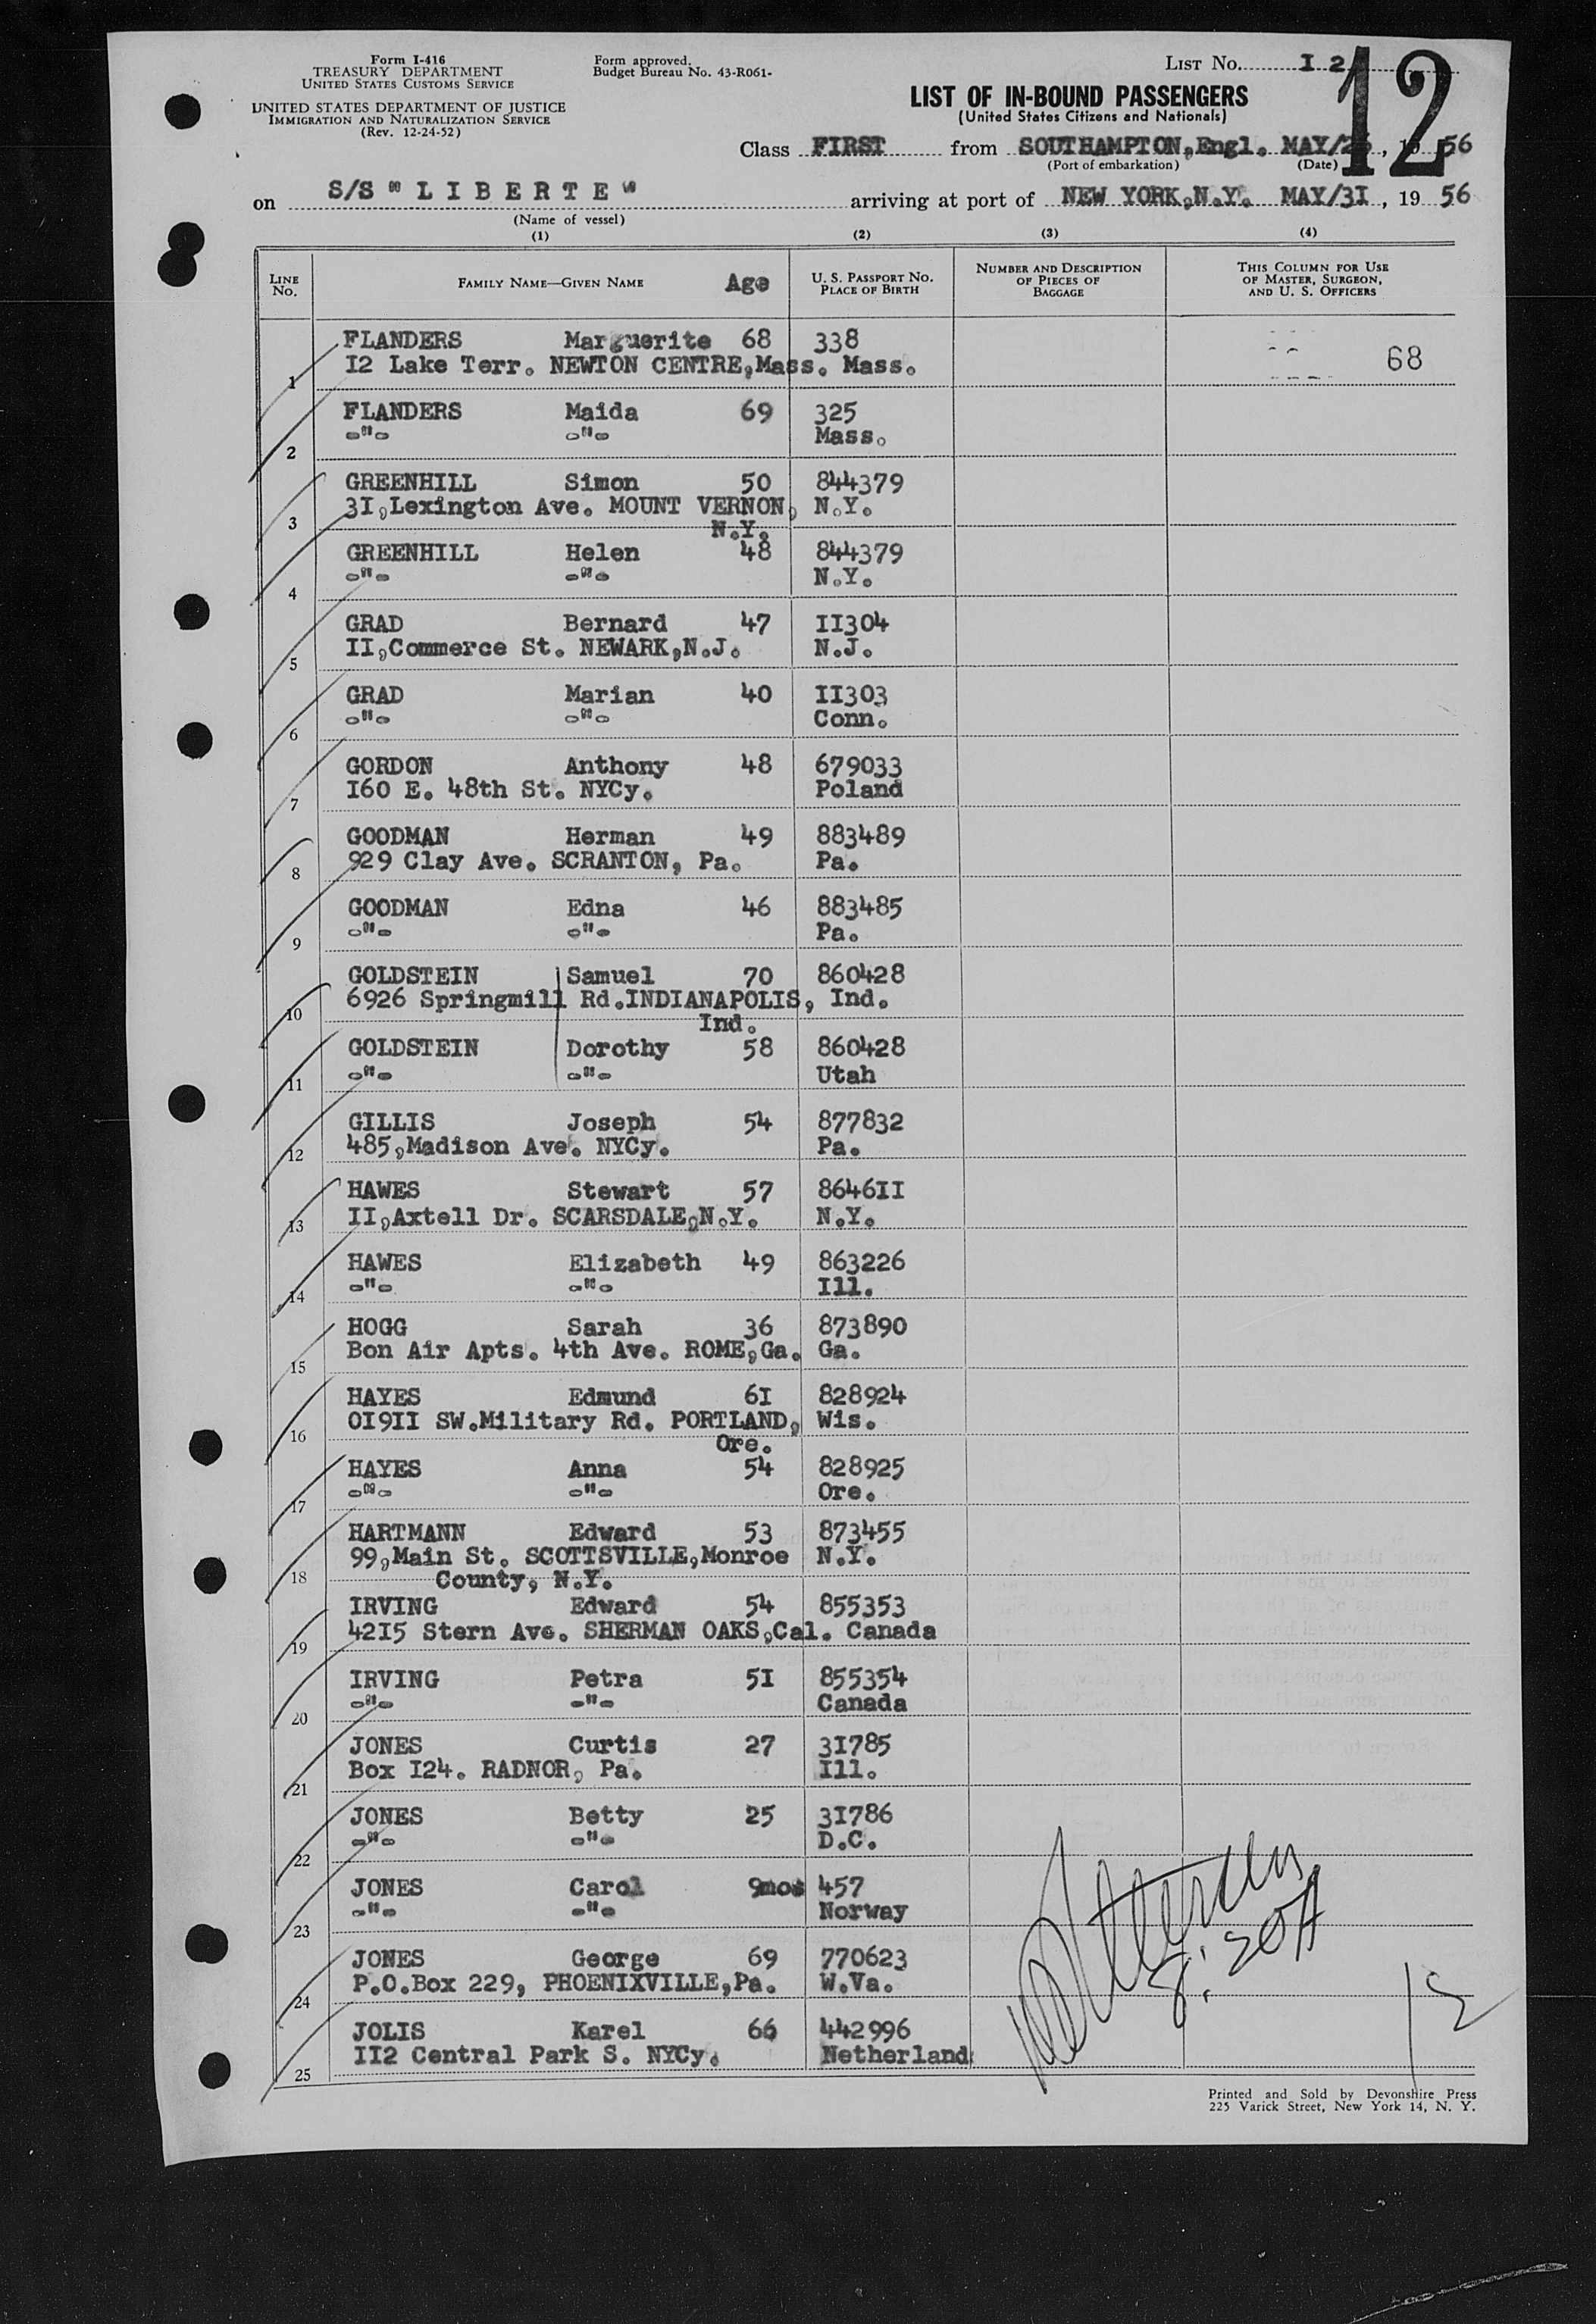 Form I-416
TREASURY DEPARTMENT
UNITED STATES CUSTOMS SERVICE
UNITED STATES DEPARTMENT OF JUSTICE
IMMIGRATION AND NATURALIZATION SERVICE
(Rev. 12-24-52)
Form approved.
Budget Bureau No. 43-R061-
LIST No. I2
12
LIST OF IN-BOUND PASSENGERS
(United States Citizens and Nationals)
Class FIRST from SOUTHAMPTON,Engl. MAY/ , 19 56
(Port of embarkation) (Date)
on S/S " L I B E R T E " arriving at port of NEW YORK,N.Y. MAY/3I , 19 56
(Name of vessel)
(1) (2) (3) (4)
LINE No. FAMILY NAME—GIVEN NAME Age U. S. PASSPORT NO. PLACE OF BIRTH NUMBER AND DESCRIPTION OF PIECES OF BAGGAGE THIS COLUMN FOR USE OF MASTER, SURGEON, AND U. S. OFFICERS
FLANDERS Marguerite 68 338
1 I2 Lake Terr. NEWTON CENTRE,Mass. Mass. 68
FLANDERS Maida 69 325
2 -"- -"- Mass.
GREENHILL Simon 50 844379
3 3I,Lexington Ave. MOUNT VERNON, N.Y.
N.Y.
GREENHILL Helen 48 844379
4 -"- -"- N.Y.
GRAD Bernard 47 II304
5 II,Commerce St. NEWARK,N.J. N.J.
GRAD Marian 40 II303
6 -"- -"- Conn.
GORDON Anthony 48 679033
7 I60 E. 48th St. NYCy. Poland
GOODMAN Herman 49 883489
8 929 Clay Ave. SCRANTON, Pa. Pa.
GOODMAN Edna 46 883485
9 -"- -"- Pa.
GOLDSTEIN Samuel 70 860428
10 6926 Springmill Rd.INDIANAPOLIS, Ind.
Ind.
GOLDSTEIN Dorothy 58 860428
11 -"- -"- Utah
GILLIS Joseph 54 877832
12 485,Madison Ave. NYCy. Pa.
HAWES Stewart 57 8646II
13 II,Axtell Dr. SCARSDALE,N.Y. N.Y.
HAWES Elizabeth 49 863226
14 -"- -"- Ill.
HOGG Sarah 36 873890
15 Bon Air Apts. 4th Ave. ROME,Ga. Ga.
HAYES Edmund 6I 828924
16 OI9II SW.Military Rd. PORTLAND, Wis.
Ore.
HAYES Anna 54 828925
17 -"- -"- Ore.
HARTMANN Edward 53 873455
18 99,Main St. SCOTTSVILLE,Monroe N.Y.
County, N.Y.
IRVING Edward 54 855353
19 42I5 Stern Ave. SHERMAN OAKS,Cal. Canada
IRVING Petra 5I 855354
20 -"- -"- Canada
JONES Curtis 27 3I785
21 Box I24. RADNOR, Pa. Ill.
JONES Betty 25 3I786
22 -"- -"- D.C.
JONES Carol 9mos 457
23 -"- -"- Norway
JONES George 69 770623
24 P.O.Box 229, PHOENIXVILLE,Pa. W.Va.
JOLIS Karel 66 442996
25 II2 Central Park S. NYCy. Netherland
Printed and Sold by Devonshire Press
225 Varick Street, New York 14, N. Y.